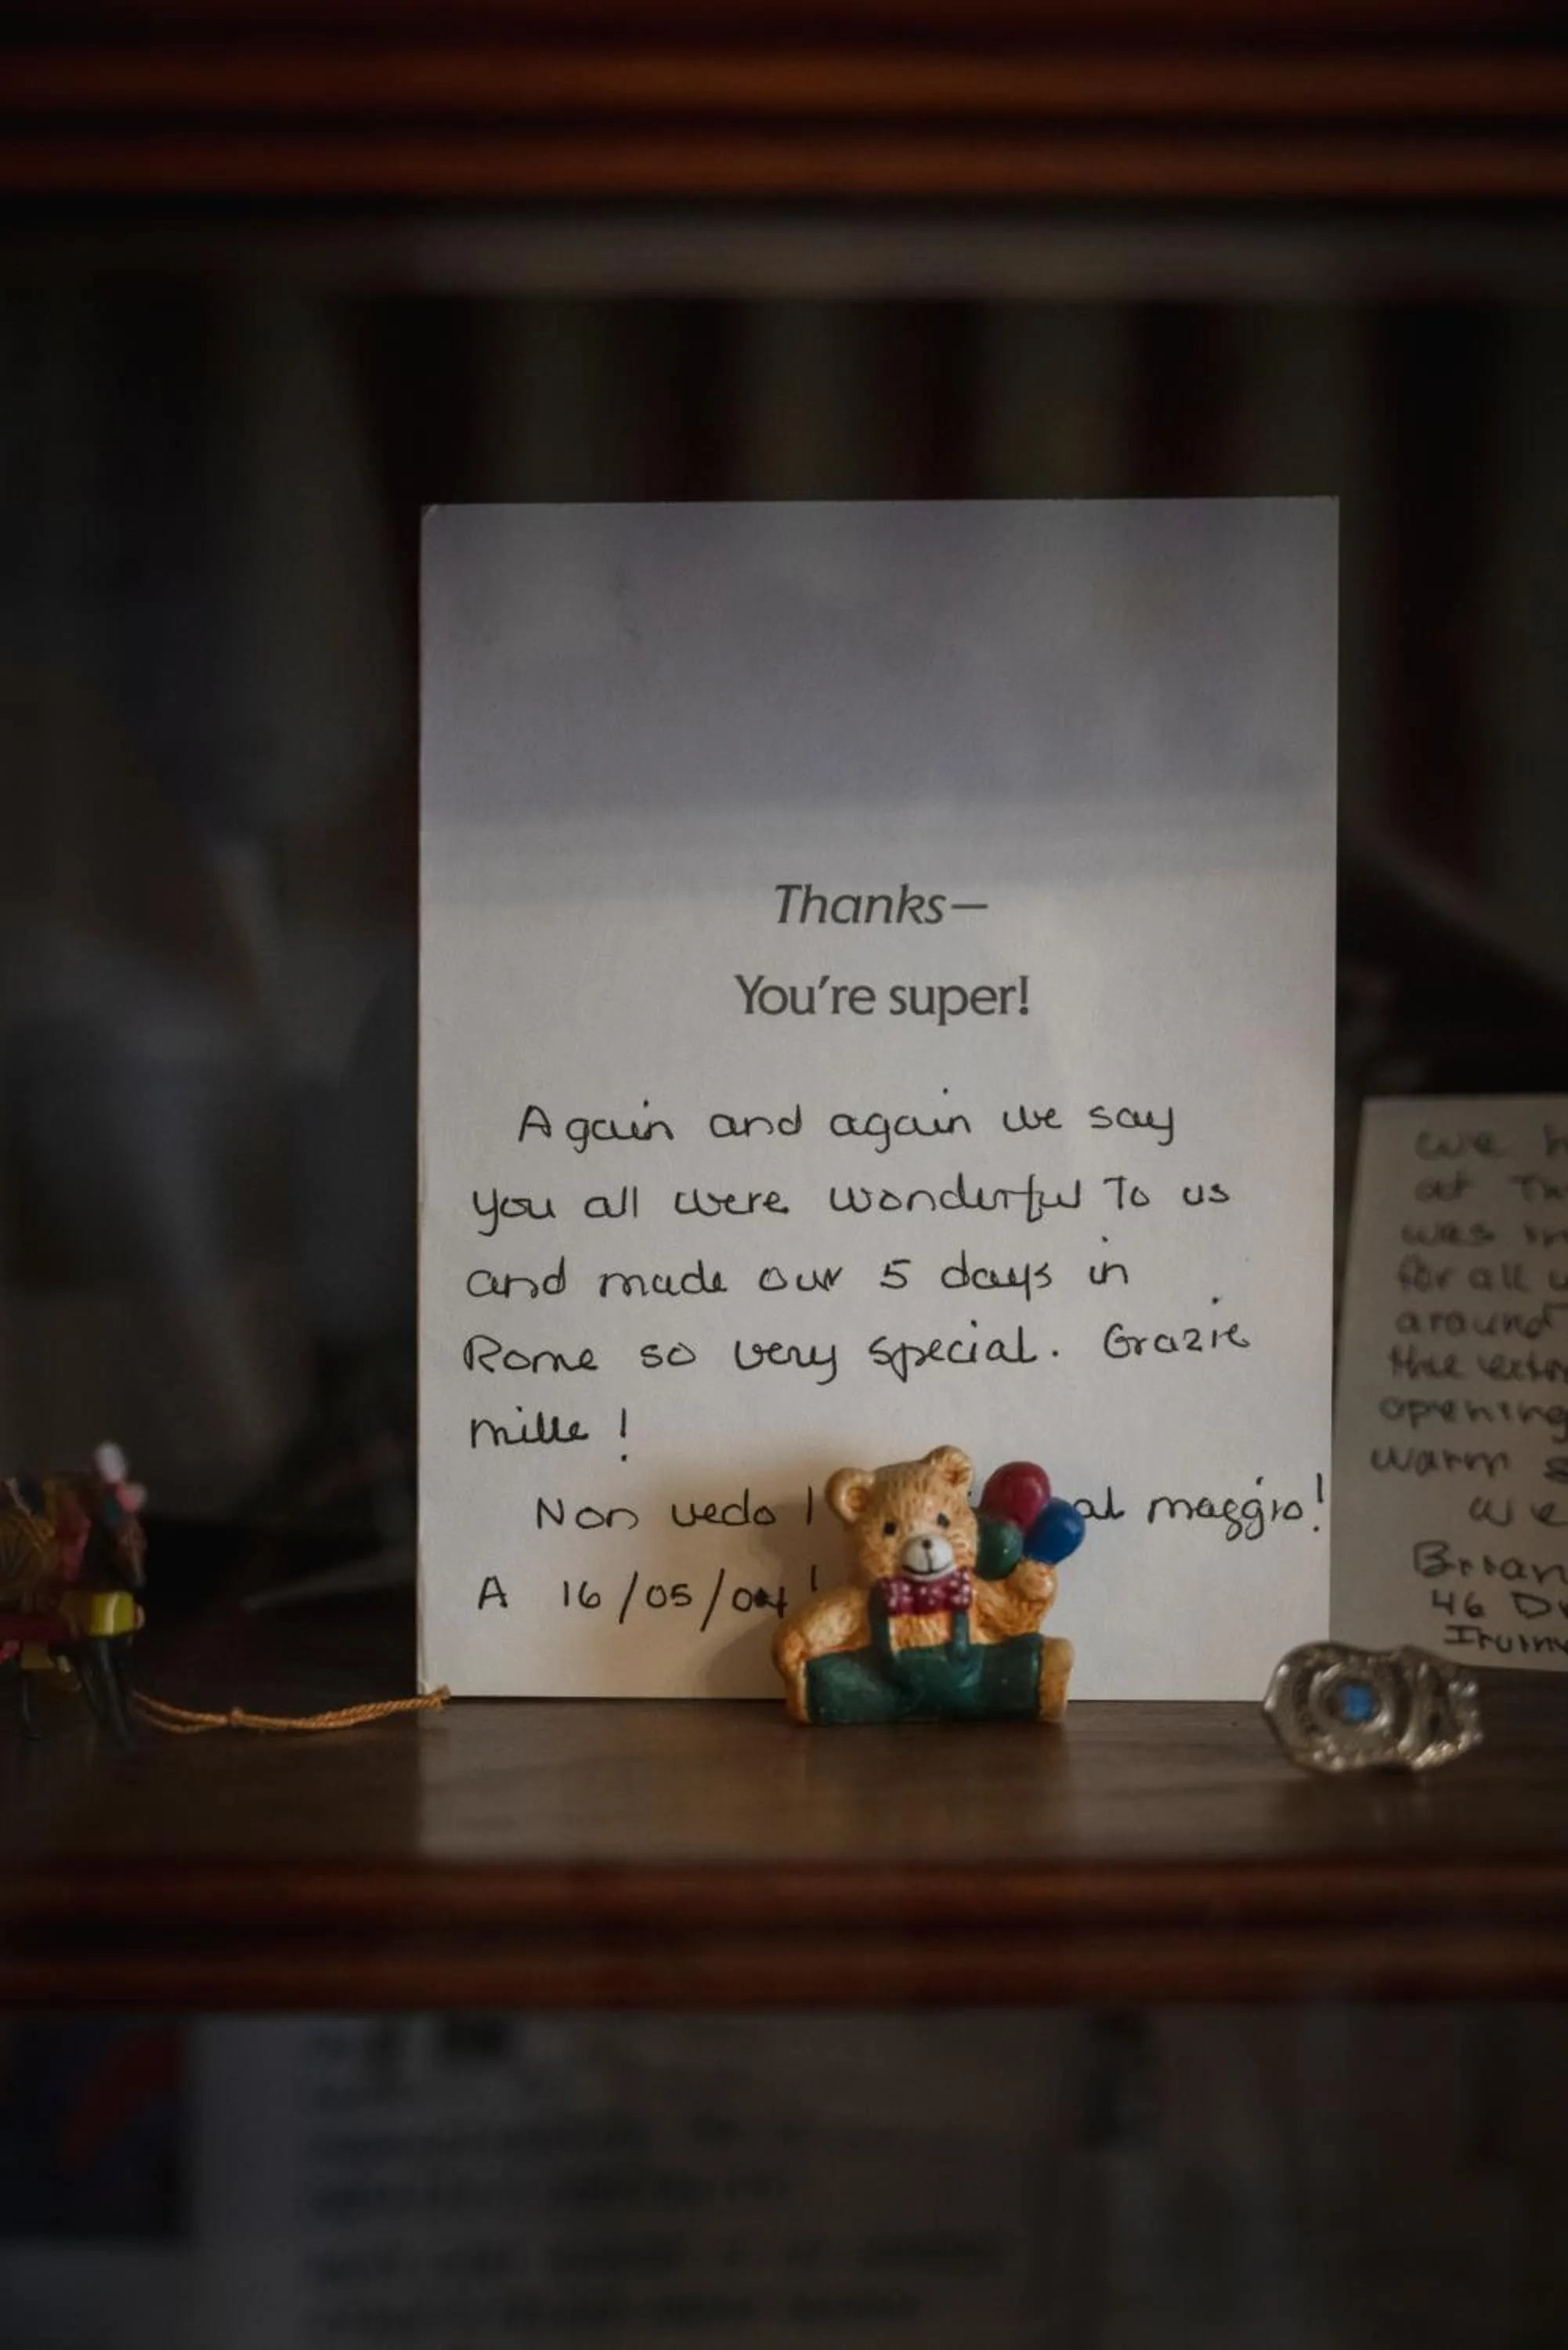 Thanks—
You're super!
Again and again we say
you all were wonderful to us
and made our 5 days in
Rome so very special. Grazie
mille!
Non vedo al maggio!
A 16/05/04!
we
at
was
for all
around
the
opening
warm
we
Brian
46